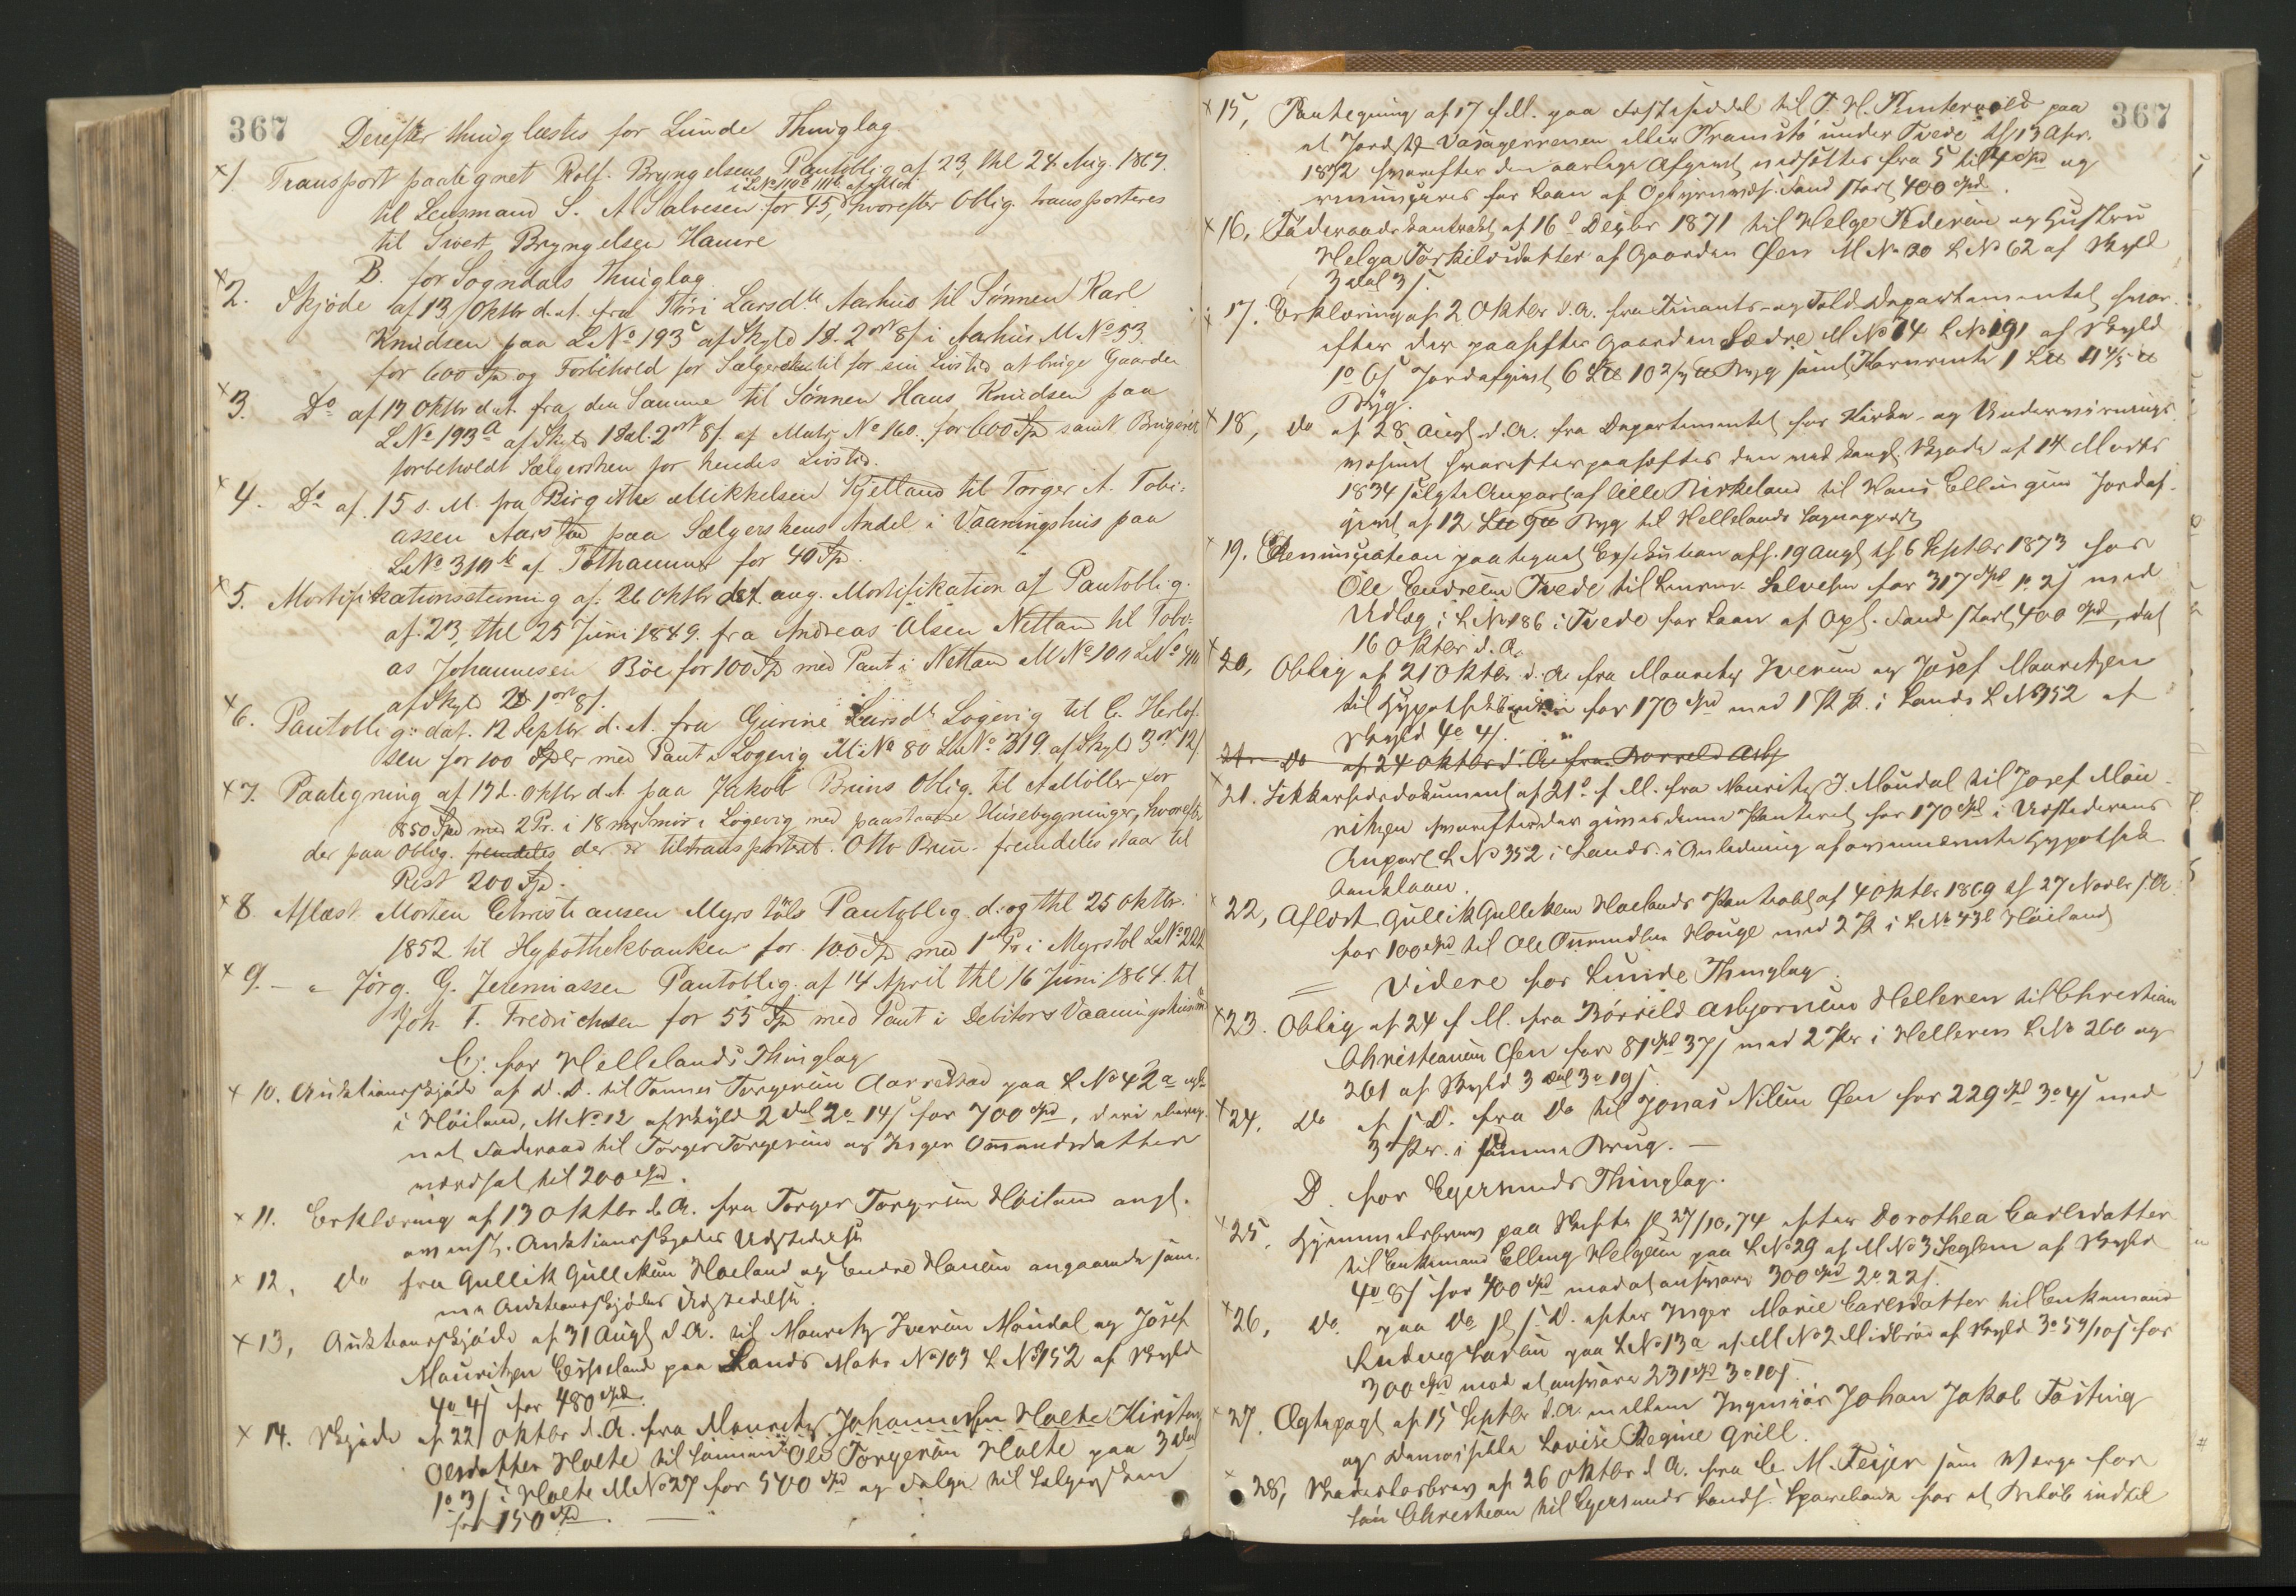 367
Derefter thinglæstes for Lunde Thinglag
x 1. Transport paategnet Rolf Bryngelsens Pantoblig af 23, thl 24 Aug. 1869.
til Lensmand S. A Salvesen for 45, hvorefter Oblig. transporteres
til Sivert Bryngelsen Hamre
B. for Sogndals Thinglag
x 2. Skjöde af 13 Oktbr d. A. fra Thori Larsdtr Aarhus til Sönnen Karl
Knudsen paa LNo 193c af Skyld 1d. 2ort 8s i Aarhus MNo 53.
for 600 Spd og Forbehold for Sælgersken til for sin Livstid at bruge Gaarden
x 3. Do af 13 Oktbr d. A. fra den Samme til Sönnen Hans Knudsen paa
LNo 193a af Skyld 1dal. 2ort 8s af Matr No 160. for 600 Spd samt Brugsret
forbeholdt Sælgersken for hendes Livstid.
x 4. Do af 15 s. M. fra Birgithe Mikkelsen Kjelland til Torger A. Tobi-
assen Aarstad paa Sælgerskens Andel i Vaaningshus paa
LNo 310 b af Tothammer for 40 Spd.
x 5. Mortifikationsstevning af 26 Oktbr d. A. ang. Mortifikation af Pantoblig.
af 23, thl 25 Juni 1849. fra Andreas Olsen Nettan til Tobi-
as Johannesen Böe for 100 Spd med Pant i Nettan MNo 101 LNo
af Skyld 2d 1ort 8s.
x 6. Pantoblig: dat. 12 Septbr d. A. fra Gurine Larsdtr Logevig til C. Herlof-
sen for 100 Spdlr med Pant i Logevig MNo 80 LNo 319 af Skyld 3ort 12s
x 7. Paategning af 17d. Oktbr d. A paa Jakob Bruns Oblig. til A Möller for
850 Spd med 2 Pr. i 18 mrk Smör i Logevig med paastaaende Husebygninger, hvorefter
der paa Oblig. fremdeles der er tiltransporteret Otto Brun fremdeles staar til
Rest 200 Spd.
x 8. Aflæst Morten Christiansen Myrstöls Pantoblig d. og thl 25 Oktbr.
1852 til Hypothekbanken for 100 Spd med 1ste Pr i Myrstöl LNo 222
x 9. — " Jörg. G. Jeremiassen Pantoblig. af 14 April thl 16 Juni 1864. til
Joh. T. Fredrichsen for 55 Spd med Pant i Debitors Vaaningshus
C: for Hellelands Thinglag
x 10. Auktionsskjöde af D. D. til Tonnes Torgersen Aarrestad paa LNo 42a
i Höiland, MNo 12 af Skyld 2dal 2o 14s for 700 Spd,
Föderaad til Torger Torgersen og Inger Omundsdatter
værdsat til 200 Spd.
x 11. Erklæring af 13 Oktbr d. A. fra Torger Torgersen Höiland angl.
Auktionsskjödes Udstedelse
x 12. Do fra Gullik Gulliksen Hoeland og Endre Hansen angaaende sam-
me Auktionsskjödes Udstedelse.
x 13, Auktionsskjöde af 31 Augt d A. til Mauritz Iversen Mandal og Josef
Mauritzen Eisseland paa Lands Matr No 109 LNo 352 af Skyld
4o 4s for 480 Spd.
x 14. Skjöde af 22 Oktbr d. A. fra Mauritz Johannessen Holte Kirsten
Olsdatter Holte til Sönnen Ole Torgersen Holte paa 3dal
1o 3s i Holte MNo 27 for 500 Spd og Folga til Sælgersken
for 150 Spd.
367
x 15, Paategning af 17 d. M. paa Festeseddel til T. H. Puntervold paa
et Jordst Vasagerrenen eller Pramstö under Tvede tl 13 Apr.
1872 hvorefter den aarlige Afgivt nedsættes fra 5 til Spd og
for Laan af Oplysnvæs. Fond stort 400 Spd.
x 16. Föderaadskontrakt af 16d Dezbr 1871 til Helge Pedersen og Hustru
Helga Torkilsdatter af Gaarden Øen MNo 20 LNo 62 af Skyld
3 dal 3s.
x 17. Erklæring af 2 Oktbr d. A. fra Finants- og Told-Departementet hvor-
efter der paahefter Gaarden Sædre MNo 14 LNo 191 af Skyld
1o 6s Jordafgivt 6 L℔ 10 2/3 ℔ Byg samt Kornrente 1 L℔ 4 4/5 ℔
Byg.
x 18, do af 28 Augt d. A. fra Departementet for Kirke- og Undervisnings-
væsenet hvorefter paaheftes den ved kongl. Skjöde af 14 Marts
1834 solgte Anpart af lille Birkeland til Hans Ellingsen Jordaf-
givt af 12 L℔ 9 ℔ Byg til Hellelands Sognepræst
x 19. Renunciation paategnet Exsekution aff. 19 Augt tl 6 Septbr 1873 hos
Ole Endresen Tvede til Lensm. Salvesen for 317 Spd 1o 2s med
Udlæg i LNo 186 i Tvede for Laan af Opl. Fond stort 400 Spd, dat
16 Oktbr d. A.
x 20, Oblig af 21 Oktbr d. A. fra Mauritz Iversen og Josef Mauritzen
til Hypothekbanken for 170 Spd med 1 Pr. i Lands LNo 352 af
Skyld 4o 4s.
21. Do af 24 Oktbr d. A. fra Borreld Asbj
x 21. Sikkerhedsdokument af 21d. d. M. fra Mauritz I. Mandal til Josef Mau-
ritzen hvorefter der gives denne Panteret for 170 Spd i Udstederens
Anpart LNo 352 i Lands i Anledning af ovennævnte Hypothek-
banklaan.
x 22, Aflæst Gullik Gulliksen Hoelands Pantoblg af 4 Oktbr 1869 tl 27 Novbr s. A.
for 100 Spd til Ole Omundsen Hauge med 2 Pr i LNo 43b Höiland
= Videre for Lunde Thinglag.
x 23. Oblig af 24 d. M. fra Börrild Asbjornsen Helleren til Christian
Christiansen Øen for 81 Spd 37s med 2 Pr. i Helleren LNo 260 og
261 af Skyld 3 dal 3o 19s.
x 24. Do af s. D. fra Do til Jonas Nilsen Øen for 229 Spd 3o 4s med
3die Pr. i samme Brug. —
D. for Egersunds Thinglag.
x 25. Hjemmelsbrev paa Skifte sl 27/10, 74 efter Dorothea Carlsdatter
til Enkemand Elling Helgesen paa LNo 29 af MNo 3 Seglem af Skyld
4o 8s for 400 Spd mod at ansvare 300 Spd 2o 22s.
x 26, do. paa do sl s. D. efter Inger Marie Carlsdatter til Enkemand
Ludvig Larsen paa LNo 13a af MNo 2 Midbröd af Skyld 3o 5 9/10s for
300 Spd mod at ansvare 231 Spd 3o 10s.
x 27. Ægtepagt af 15 Septbr d. A. mellem Ingeniör Johan Jakob Fasting
og Demoiselle Lovise Regine Grill.
x 28, Skadeslösbrev af 26 Oktbr d A. fra C. M. Feijer som Værge for
Sön Christian til Egersunds Lands. Sparebank for et Belöb indtil